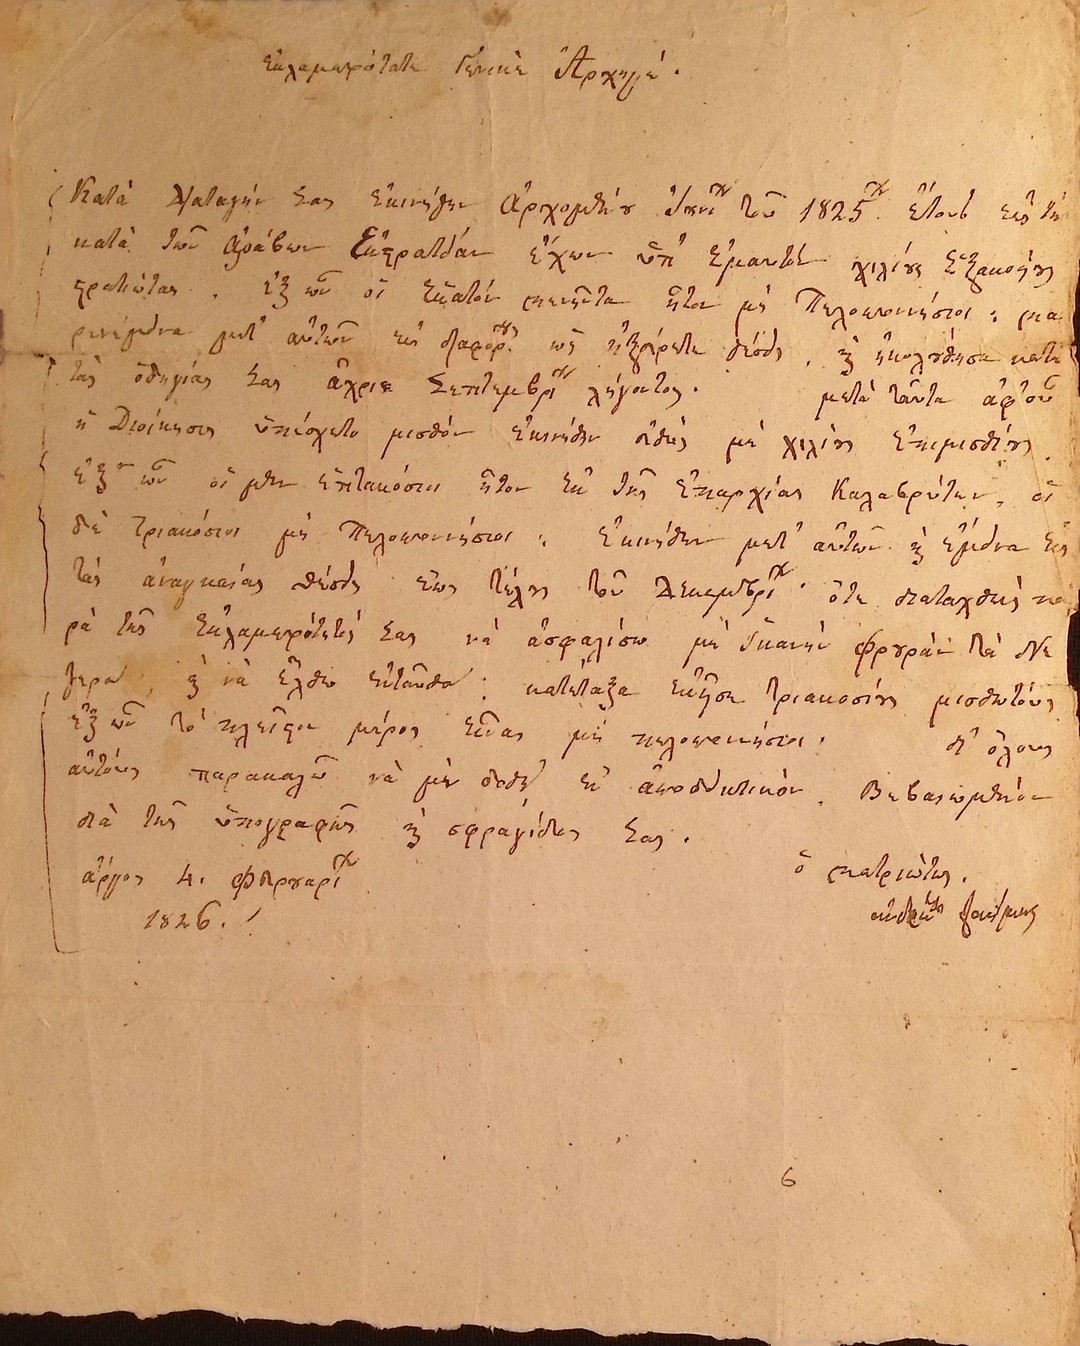 Ἐκλαμπρότατε Γενικὲ Ἀρχηγέ.
Κατὰ διαταγήν σας ἐκινήθην ἀρχομένου Ἰουνίου τοῦ 1825 ἔτους εἰς τὴν
κατὰ τῶν ἀράβων ἐκστρατείαν ἔχων ὑπ' ἐμαυτὸν χιλίους ἑξακοσίους
στρατιώτας. ἐξ ὧν οἱ ἑκατὸν πενῆντα ἦτον μὴ Πελοποννήσιοι:
μετ' αὐτῶν εἰς διαφόρους θέσεις, καὶ ἠκολούθησα κατὰ
τὰς ὁδηγίας σας ἄχρι Σεπτεμβρίου λήγοντος. μετὰ ταῦτα ἀφ' οὗ
ἡ Διοίκησις ὑπέσχετο μισθὸν ἐκινήθην εὐθὺς μὲ χιλίους ἐπιμισθίους.
ἐξ ὧν οἱ μὲν ἑπτακόσιοι ἦτον ἐκ τῆς ἐπαρχίας Καλαβρύτων, οἱ
δὲ τριακόσιοι μὴ Πελοποννήσιοι: ἐκινήθην μετ' αὐτῶν καὶ ἔμεινα εἰς
τὰς ἀναγκαίας θέσεις ἕως τέλους τοῦ Δεκεμβρίου. ὅτε διαταχθεὶς πα
ρὰ τῆς ἐκλαμπρότητός σας νὰ ἀσφαλίσω μὲ ἱκανὴν φρουρὰν τὰ
καὶ νὰ ἔλθω ἐνταῦθα: κατέταξα ἐκεῖσε τριακοσίους μισθωτούς
ἐξ ὧν τὸ πλεῖστον μέρος εἶναι μὴ πελοποννήσιοι. δι' ὅλους
αὐτοὺς παρακαλῶ νὰ μὲ δοθῇ ἓν ἀποδεικτικόν, βεβαιωμένον
διὰ τῆς ὑπογραφῆς καὶ σφραγίδος σας.
ἄργος 4. Φεβρουαρίου ὁ πατριώτης.
1826.
6